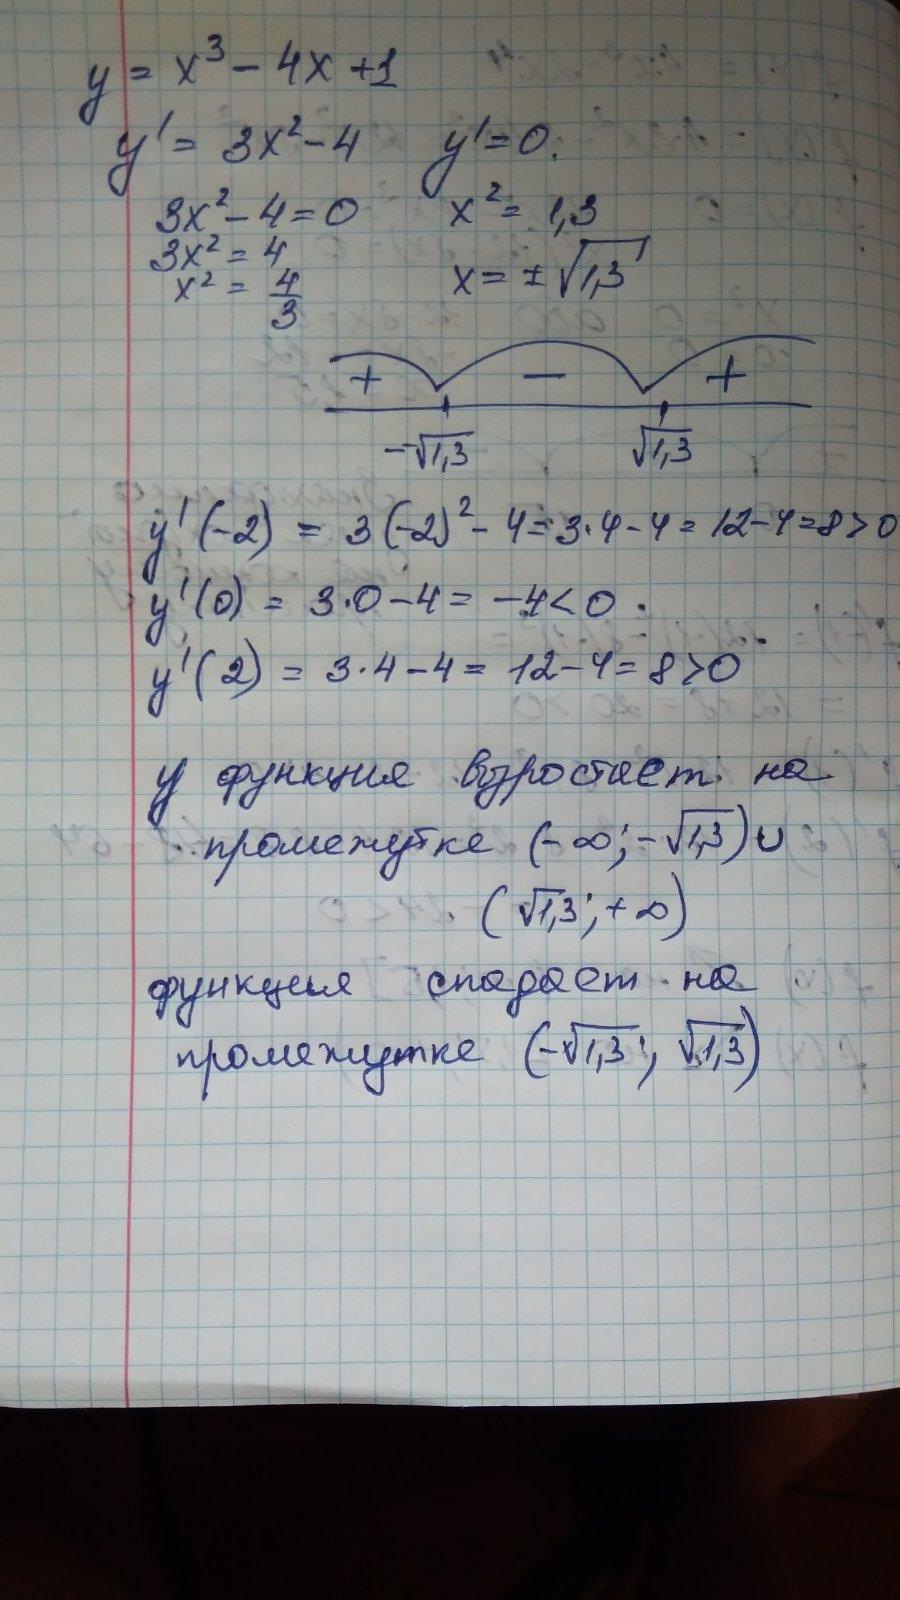 y = x³ - 4x + 1
y' = 3x² - 4   y' = 0.
3x² - 4 = 0   x² = 1,3
3x² = 4
x² = 4/3   x = ± √1,3
+ − +
-√1,3   √1,3
y'(-2) = 3(-2)² - 4 = 3·4 - 4 = 12 - 4 = 8 > 0
y'(0) = 3·0 - 4 = -4 < 0.
y'(2) = 3·4 - 4 = 12 - 4 = 8 > 0
y функция возростает на
промежутке (-∞; -√1,3) ∪
(√1,3; +∞)
функция спадает на
промежутке (-√1,3; √1,3)